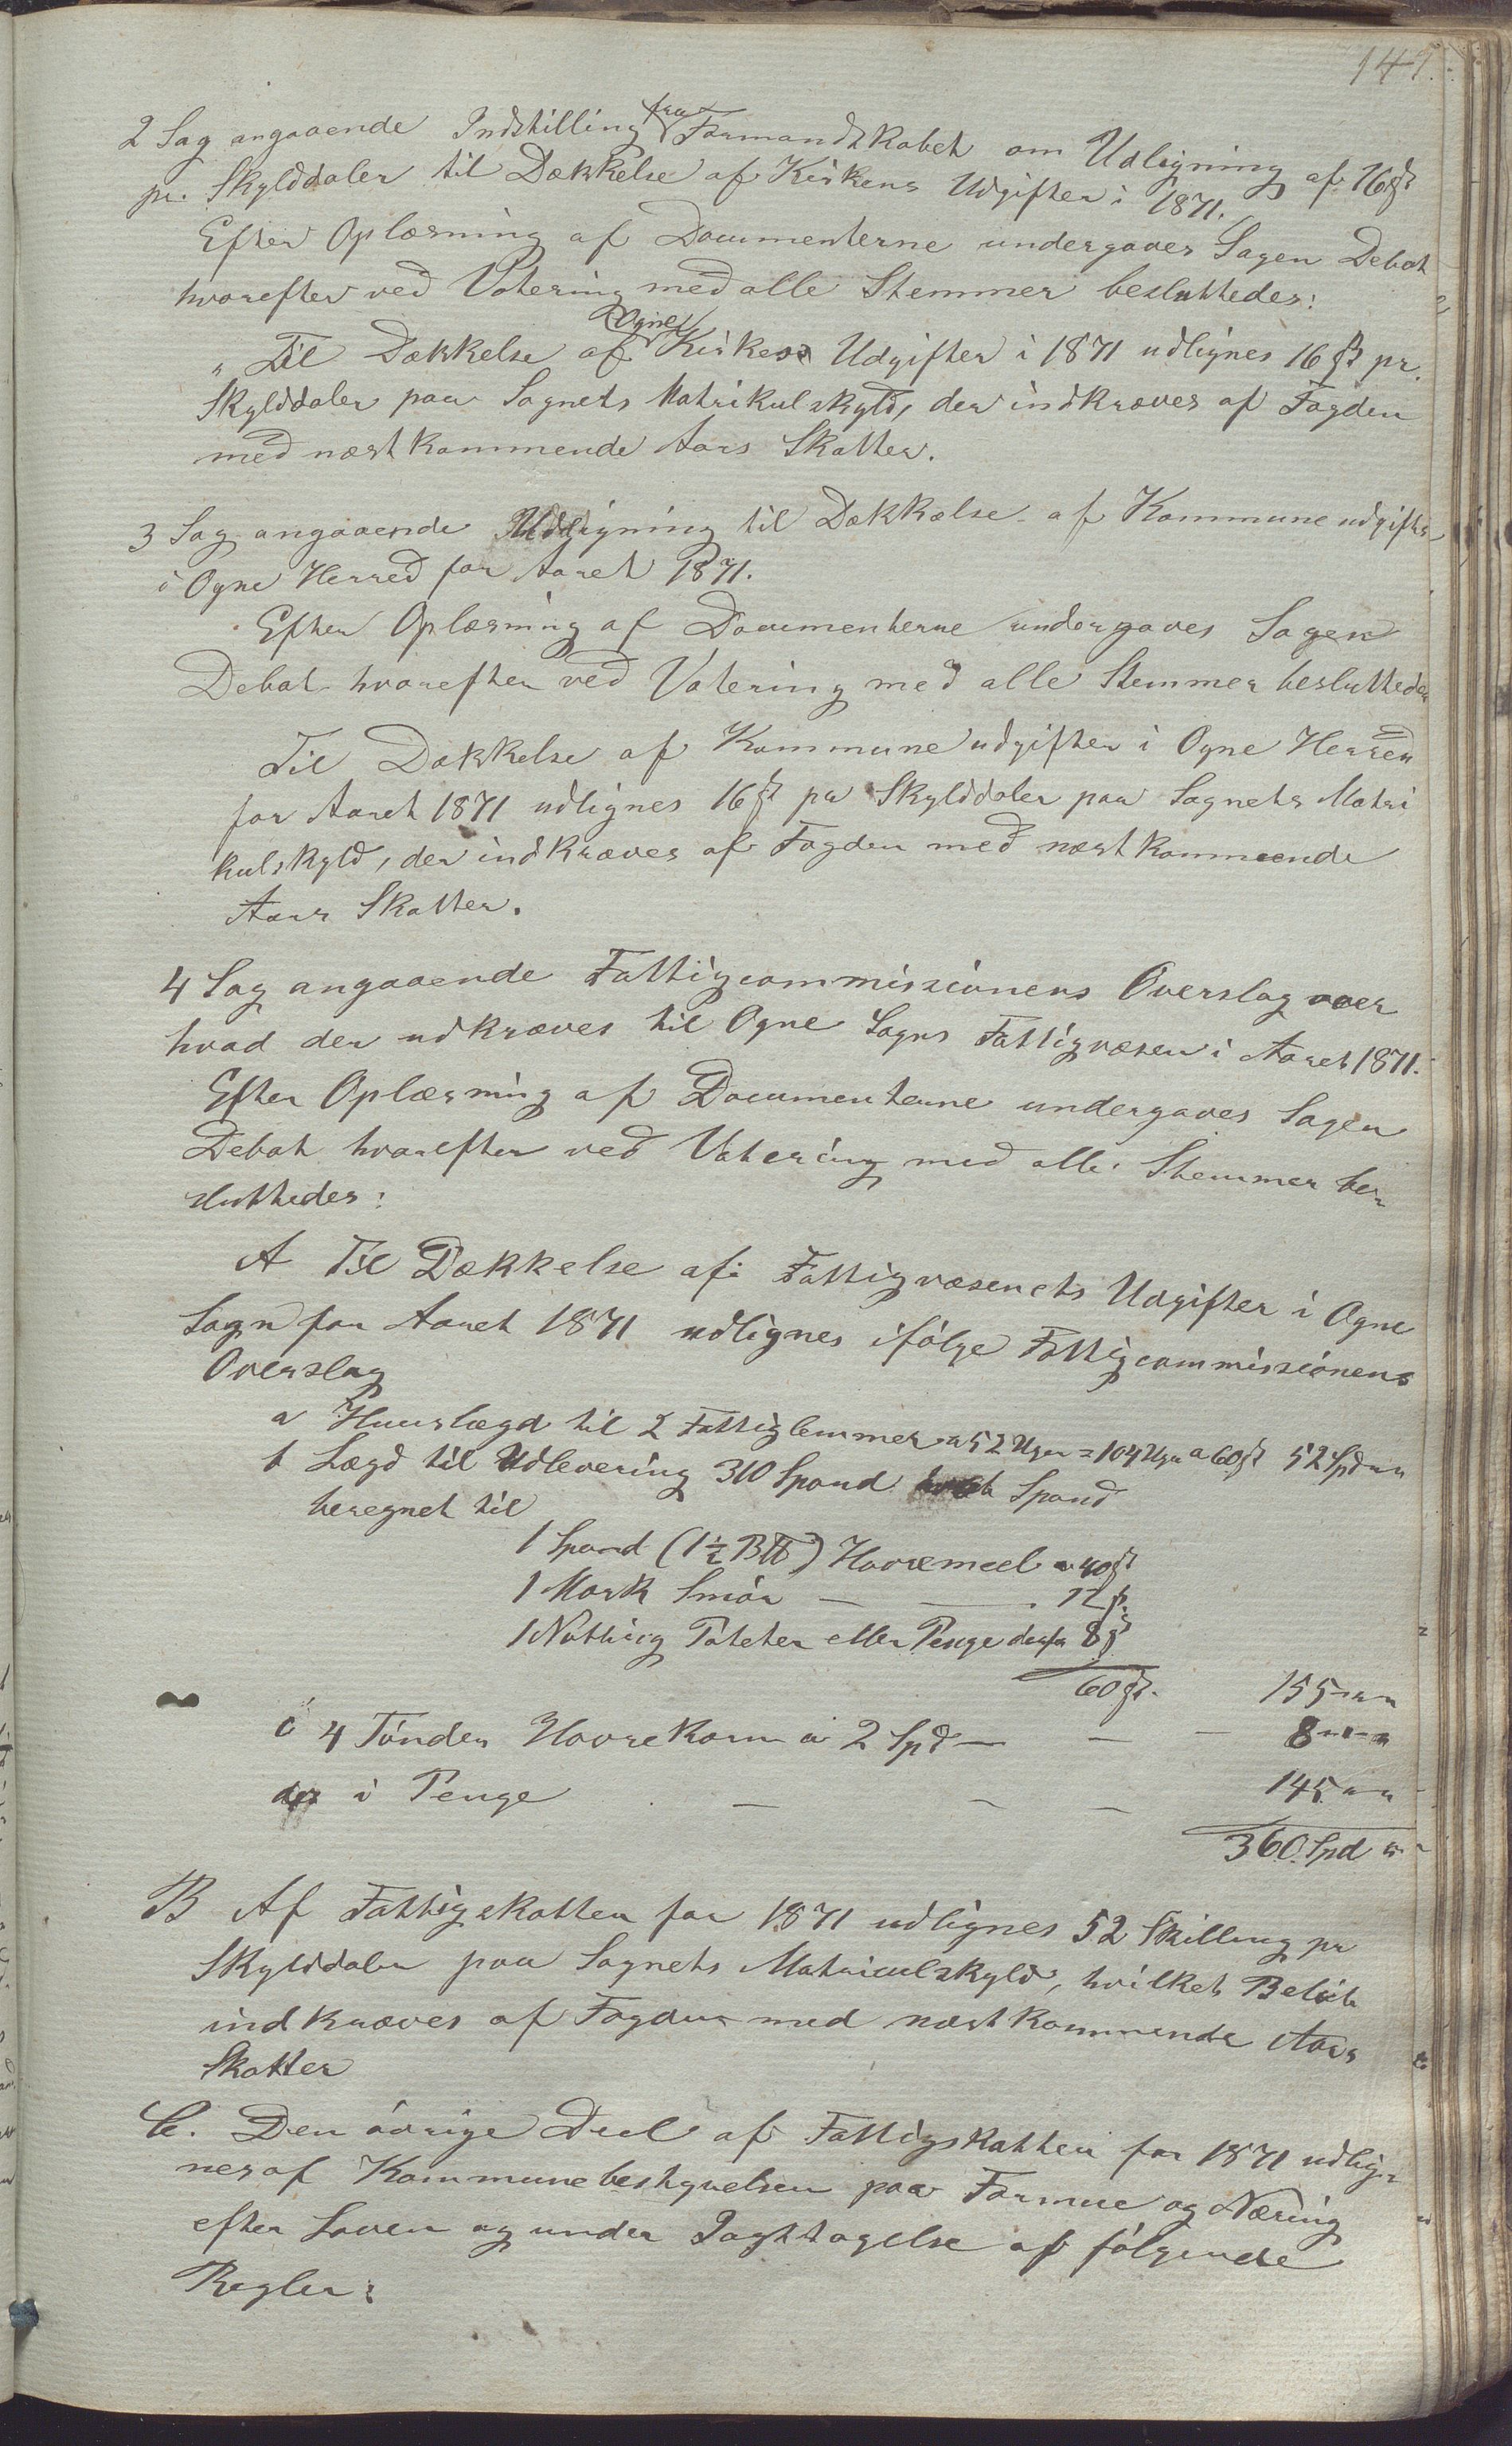 147.
2 Sag angaaende Indstilling fra Formandskabet om Udligning af 16 ß
pr. Skylddaler til Dækkelse af Kirkens Udgifter i 1871.
Efter Oplæsning af Documenterne undergaves Sagen Debat
hvorefter ved Votering med alle Stemmer besluttedes:
„ Til Dækkelse af Ogne Kirkes Udgifter i 1871 udlignes 16 ß pr.
Skylddaler paa Sognets Matrikulskyld, der indkræves af Fogden
med næstkommende Aars Skatter.
3 Sag angaaende Udligning til Dækkelse af Kommuneudgifter
i Ogne Herred for Aaret 1871.
Efter Oplæsning af Documenterne undergaves Sagen
Debat hvorefter ved Votering med alle Stemmer besluttedes
Til Dækkelse af Kommuneudgifter i Ogne Herred
for Aaret 1871 udlignes 16 ß pr Skylddaler paa Sognets Matri
kulskyld, der indkræves af Fogden med næstkommende
Aars Skatter.
4 Sag angaaende Fattigcommissionens Overslag over
hvad der udkræves til Ogne Sogns Fattigvæsen i Aaret 1871.
Efter Oplæsning af Documenterne undergaves Sagen
Debat hvorefter ved Votering med alle Stemmer be-
sluttedes:
A Til Dækkelse af Fattigvæsenets Udgifter i Ogne
Sogn for Aaret 1871 udlignes ifølge Fattigcommissionens
Overslag
a Huuslægd til 2 Fattiglemmer a 52 Uger = 104 Uger a 60 ß 52 Spd " "
b Lægd til Udlevering 310 Spand Spand
beregnet til
1 Spand (1½ B℔) Havremeel a 40 ß
1 Mark Smør — — 12 ß.
1 Notting Poteter eller Penge derfor 8 ß
60 ß. 155 " "
c 4 Tønder Havrekorn a 2 Spd — — — 8 " "
d i Penge — — — 145 " "
360 Spd "
B Af Fattigskatten for 1871 udlignes 52 Skilling pr
Skylddaler paa Sognets Matriculskyld, hvilket Beløb
indkræves af Fogden med næstkommende Aars
Skatter
C. Den øvrige Deel af Fattigskatten for 1871 udlig-
nes af Kommunebestyrelsen paa Formue og Næring
efter Loven og under Iagttagelse af følgende
Regler: